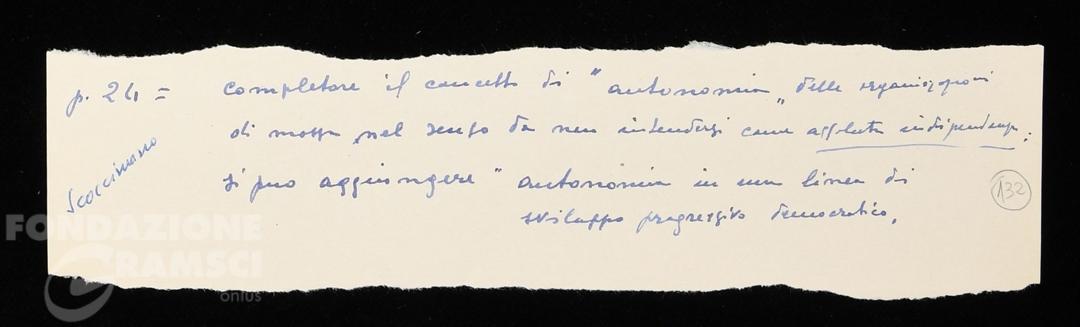 p. 24 = completare il concetto di "autonomia" delle organizzazioni
di massa, nel senso da non intendersi come assoluta indipendenza:
si può aggiungere "autonomia in una linea di
sviluppo progressivo democratico,
Scoccimarro
132
FONDAZIONE
GRAMSCI
onlus